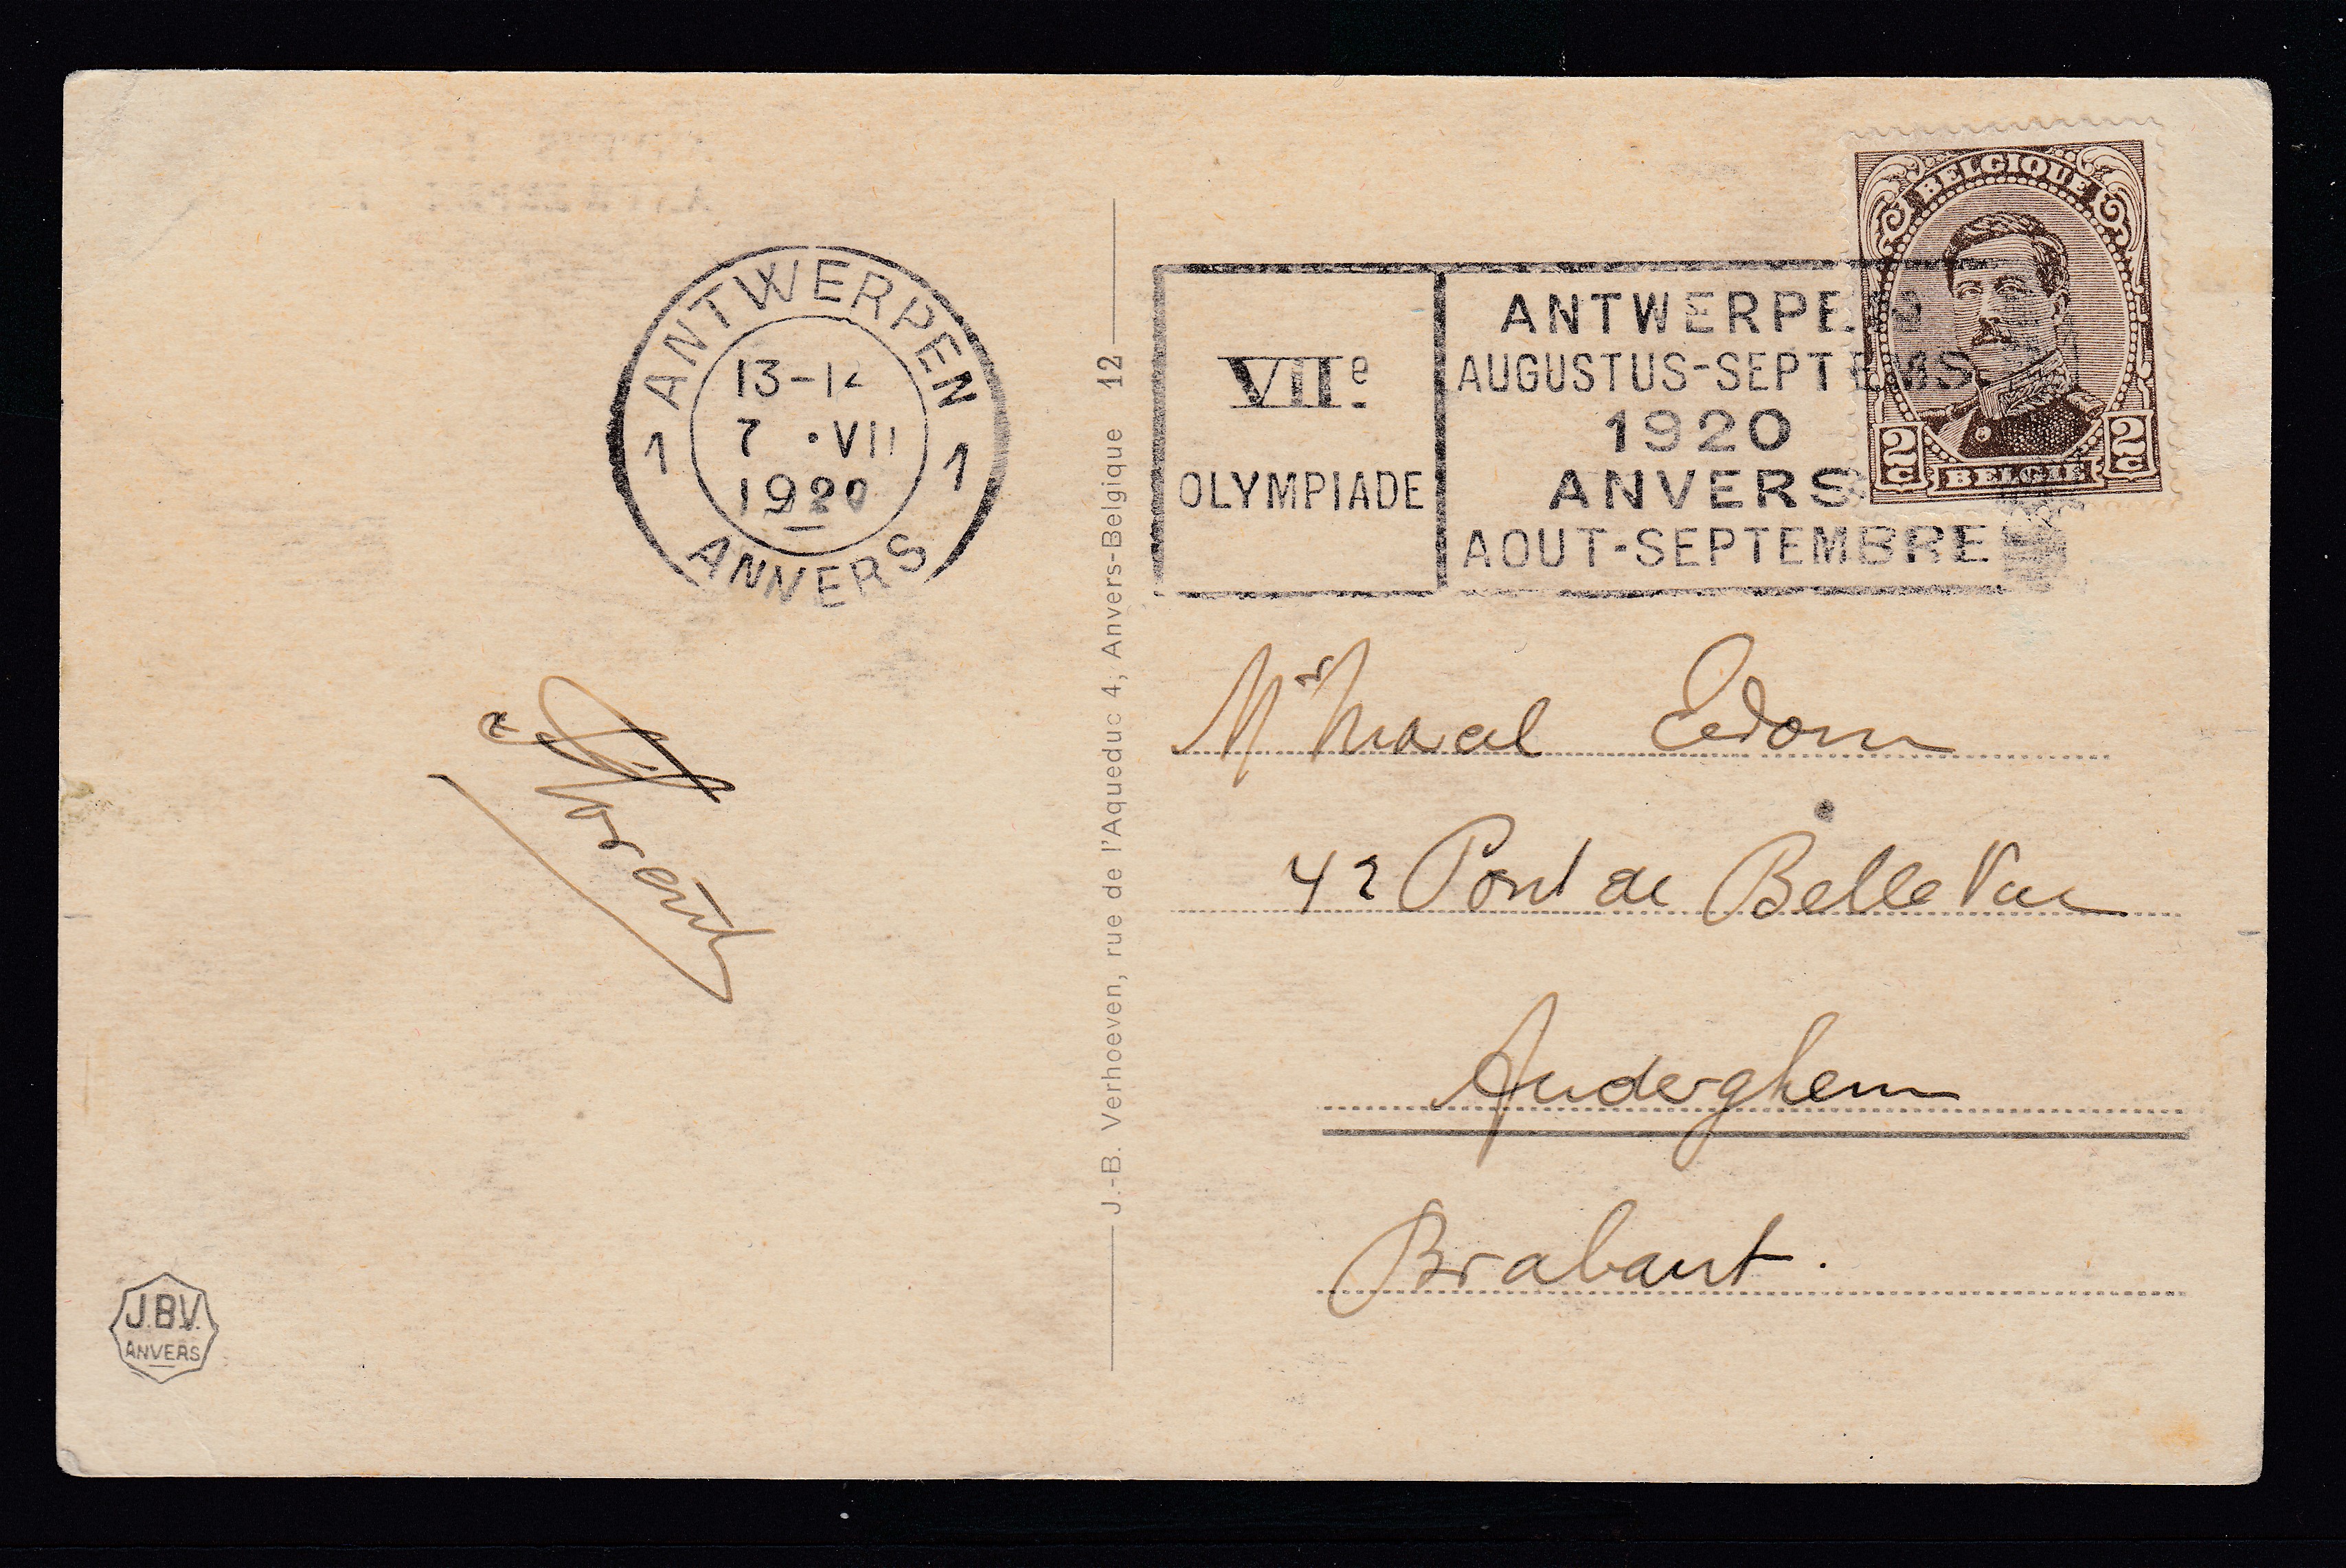 ANTWERPEN
1 1
7 •VII
1920
ANVERS
VIIe
OLYMPIADE
ANTWERPEN
AUGUSTUS-SEPTEMB
1920
ANVERS
AOUT-SEPTEMBRE
BELGIQUE
2c 2c
BELGIË
J.-B. Verhoeven, rue de l'Aqueduc 4, Anvers-Belgique 12
Mr
42 Pont de Belle Vue
Auderghem
Brabant.
J.B.V.
ANVERS